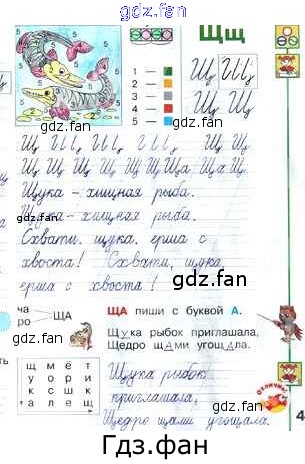 gdz.fan
Щщ
5 5 5 5 5 5 2
1 —
2 —
3 —
4 —
5 —
Щ Щ
Щ Щ
gdz.fan
gdz.fan
Щука – хищная рыба.
Щука – хищная рыба.
Схвати, щука, ерша с
хвоста! Схвати, щука,
gdz.fan
ерша с хвоста!
gdz.fan
ча
ро
ЩА
ЩА пиши с буквой А.
Щука рыбок приглашала,
Щедро щАми угощАла.
щ м ё т
у о р и
к с ш к
а л е щ
Щука рыбок
приглашала,
Щедро щами угощала.
отлично!
gdz.fan
4
Гдз.фан